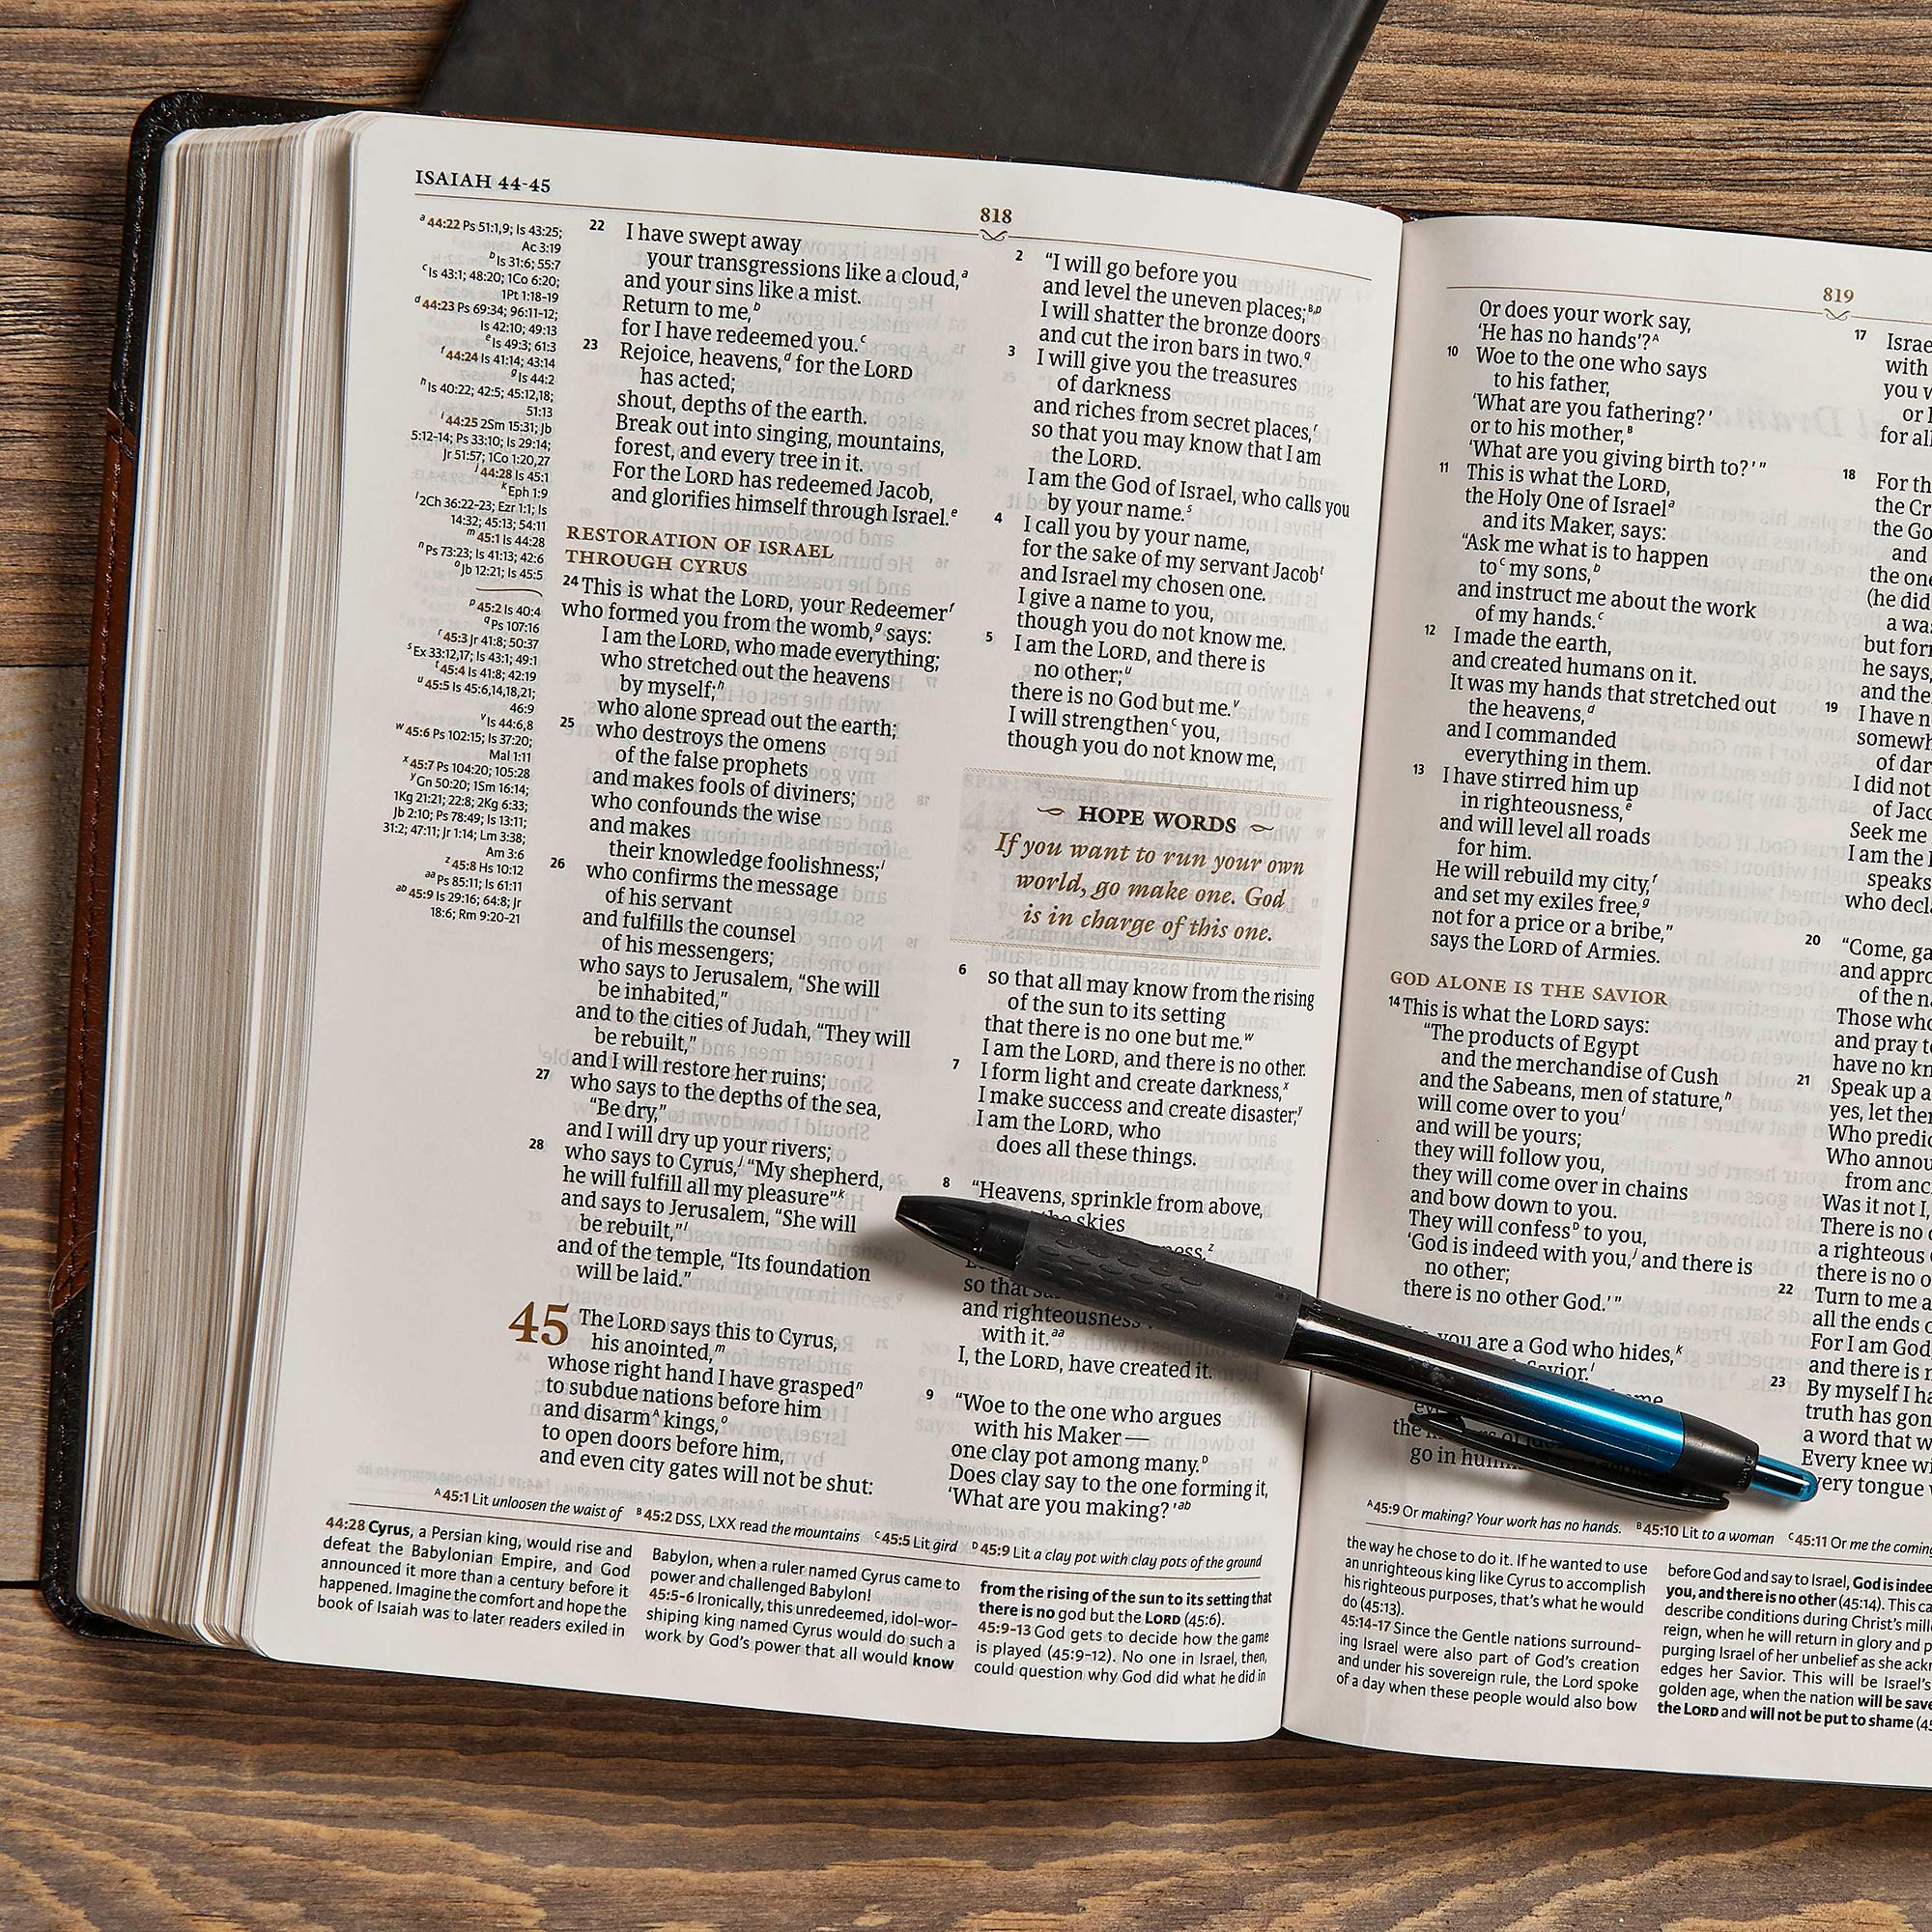 ISAIAH 44-45
818
a 44:22 Ps 51:1,9; Is 43:25;
Ac 3:19
b Is 31:6; 55:7
c Is 43:1; 48:20; 1Co 6:20;
1Pt 1:18-19
d 44:23 Ps 69:34; 96:11-12;
Is 42:10; 49:13
e Is 49:3; 61:3
f 44:24 Is 41:14; 43:14
g Is 44:2
h Is 40:22; 42:5; 45:12,18;
51:13
i 44:25 2Sm 15:31; Jb
5:12-14; Ps 33:10; Is 29:14;
Jr 51:57; 1Co 1:20,27
j 44:28 Is 45:1
k Eph 1:9
l 2Ch 36:22-23; Ezr 1:1; Is
14:32; 45:13; 54:11
m 45:1 Is 44:28
n Ps 73:23; Is 41:13; 42:6
o Jb 12:21; Is 45:5
p 45:2 Is 40:4
q Ps 107:16
r 45:3 Jr 41:8; 50:37
s Ex 33:12,17; Is 43:1; 49:1
t 45:4 Is 41:8; 42:19
u 45:5 Is 45:6,14,18,21;
46:9
v Is 44:6,8
w 45:6 Ps 102:15; Is 37:20;
Mal 1:11
x 45:7 Ps 104:20; 105:28
y Gn 50:20; 1Sm 16:14;
1Kg 21:21; 22:8; 2Kg 6:33;
Jb 2:10; Ps 78:49; Is 13:11;
31:2; 47:11; Jr 1:14; Lm 3:38;
Am 3:6
z 45:8 Hs 10:12
aa Ps 85:11; Is 61:11
ab 45:9 Is 29:16; 64:8; Jr
18:6; Rm 9:20-21
22 I have swept away
your transgressions like a cloud,a
and your sins like a mist.
Return to me,b
for I have redeemed you.c
23 Rejoice, heavens,d for the LORD
has acted;
shout, depths of the earth.
Break out into singing, mountains,
forest, and every tree in it.
For the LORD has redeemed Jacob,
and glorifies himself through Israel.e
RESTORATION OF ISRAEL
THROUGH CYRUS
24 This is what the LORD, your Redeemerf
who formed you from the womb,g says:
I am the LORD, who made everything;
who stretched out the heavens
by myself;h
who alone spread out the earth;
25 who destroys the omens
of the false prophets
and makes fools of diviners;
who confounds the wise
and makes
their knowledge foolishness;i
26 who confirms the message
of his servant
and fulfills the counsel
of his messengers;
who says to Jerusalem, “She will
be inhabited,”
and to the cities of Judah, “They will
be rebuilt,”
and I will restore her ruins;
27 who says to the depths of the sea,
“Be dry,”
and I will dry up your rivers;
28 who says to Cyrus,j “My shepherd,
he will fulfill all my pleasure”k
and says to Jerusalem, “She will
be rebuilt,”l
and of the temple, “Its foundation
will be laid.”
45 The LORD says this to Cyrus,
his anointed,m
whose right hand I have graspedn
to subdue nations before him
and disarmA kings,o
to open doors before him,
and even city gates will not be shut:
2 “I will go before you
and level the uneven places;B,p
I will shatter the bronze doors
and cut the iron bars in two.q
3 I will give you the treasures
of darkness
and riches from secret places,r
so that you may know that I am
the LORD.
I am the God of Israel, who calls you
by your name.s
4 I call you by your name,
for the sake of my servant Jacobt
and Israel my chosen one.
I give a name to you,
though you do not know me.
5 I am the LORD, and there is
no other;u
there is no God but me.v
I will strengthenC you,
though you do not know me,
HOPE WORDS
If you want to run your own
world, go make one. God
is in charge of this one.
6 so that all may know from the rising
of the sun to its setting
that there is no one but me.w
I am the LORD, and there is no other.
7 I form light and create darkness,x
I make success and create disaster;y
I am the LORD, who
does all these things.
8 “Heavens, sprinkle from above,
the skies
z
so that
and righteousness
with it.aa
I, the LORD, have created it.
9 “Woe to the one who argues
with his Maker —
one clay pot among many.D
Does clay say to the one forming it,
‘What are you making?’ab
A 45:1 Lit unloosen the waist of B 45:2 DSS, LXX read the mountains C 45:5 Lit gird D 45:9 Lit a clay pot with clay pots of the ground
44:28 Cyrus, a Persian king, would rise and
defeat the Babylonian Empire, and God
announced it more than a century before it
happened. Imagine the comfort and hope the
book of Isaiah was to later readers exiled in
Babylon, when a ruler named Cyrus came to
power and challenged Babylon!
45:5-6 Ironically, this unredeemed, idol-wor-
shiping king named Cyrus would do such a
work by God’s power that all would know
from the rising of the sun to its setting that
there is no god but the LORD (45:6).
45:9-13 God gets to decide how the game
is played (45:9-12). No one in Israel, then,
could question why God did what he did in
819
Or does your work say,
‘He has no hands’?A
10 Woe to the one who says
to his father,
‘What are you fathering?’
or to his mother,B
‘What are you giving birth to?’”
11 This is what the LORD,
the Holy One of Israela
and its Maker, says:
“Ask me what is to happen
toC my sons,b
and instruct me about the work
of my hands.c
12 I made the earth,
and created humans on it.
It was my hands that stretched out
the heavens,d
and I commanded
everything in them.
13 I have stirred him up
in righteousness,e
and will level all roads
for him.
He will rebuild my city,f
and set my exiles free,g
not for a price or a bribe,”
says the LORD of Armies.
GOD ALONE IS THE SAVIOR
14 This is what the LORD says:
“The products of Egypt
and the merchandise of Cush
and the Sabeans, men of stature,h
will come over to youi
and will be yours;
they will follow you,
they will come over in chains
and bow down to you.
They will confessD to you,
‘God is indeed with you,j and there is
no other;
there is no other God.’”
you are a God who hides,k
Savior.l
the
go in
17 Israe
with
you w
or
for all
18 For th
the Cr
the Go
and
the one
(he did
a was
but for
he says,
and the
19 I have n
somewh
of dar
I did not
of Jaco
Seek me
I am the
speaks
who decl
20 “Come, ga
and appro
of the na
Those who
and pray to
have no kn
21 Speak up a
yes, let the
Who predic
Who annou
from anc
Was it not I,
There is no o
a righteous
there is no o
22 Turn to me a
all the ends o
For I am God,
and there is n
23 By myself I ha
truth has gon
a word that w
Every knee wi
very tongue
A 45:9 Or making? Your work has no hands. B 45:10 Lit to a woman C 45:11 Or me the coming
the way he chose to do it. If he wanted to use
an unrighteous king like Cyrus to accomplish
his righteous purposes, that’s what he would
do (45:13).
45:14-17 Since the Gentile nations surround-
ing Israel were also part of God’s creation
and under his sovereign rule, the Lord spoke
of a day when these people would also bow
before God and say to Israel, God is indee
you, and there is no other (45:14). This ca
describe conditions during Christ’s mill
reign, when he will return in glory and p
purging Israel of her unbelief as she ack
edges her Savior. This will be Israel’s
golden age, when the nation will be save
the LORD and will not be put to shame (45